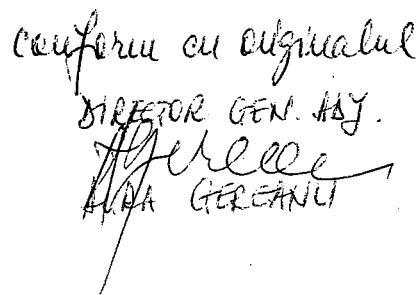 conform cu originalul
DIRECTOR GEN. ADJ.
GEREANU